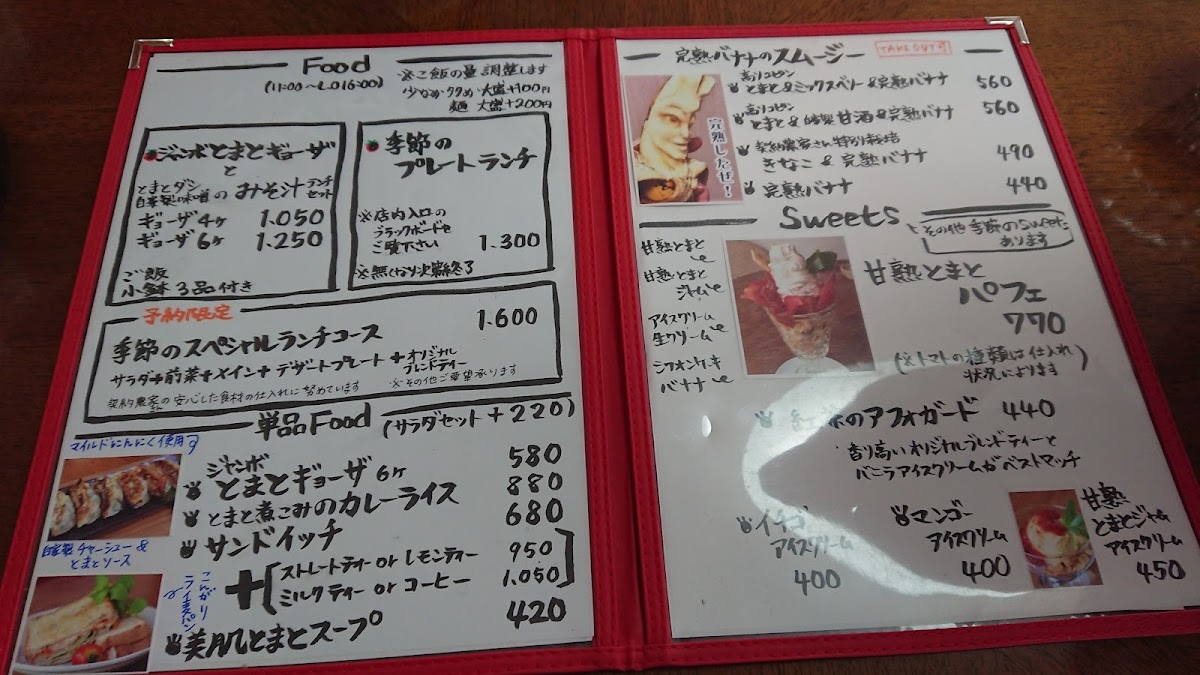 Food
(11:00〜L.O16:00)
※ご飯の量調整します
少なめ・多め・大盛+100円
麺 大盛+200円
ジャンボとまとギョーザ
と
とまとダシ
自家製の味噌のおみそ汁ランチセット
ギョーザ4ケ 1.050
ギョーザ6ケ 1.250
ご飯
小鉢3品付き
季節の
プレートランチ
※店内入口の
ブラックボードを
ご覧下さい
1.300
※無くなり次第終了
予約限定
1.600
季節のスペシャルランチコース
サラダ+前菜+メイン+デザートプレート+オリジナルブレンドティー
契約農家さんの安心した食材の仕入れに努めています
※その他ご要望承ります
単品Food (サラダセット+220)
マイルドにんにく使用
ジャンボ
とまとギョーザ6ケ 580
とまと煮こみのカレーライス 880
サンドイッチ 680
自家製チャーシュー&
とまとソース
こんがり
ライ麦パン
+[ストレートティーorレモンティー 950
ミルクティーorコーヒー 1.050]
美肌とまとスープ 420
完熟バナナのスムージー
TAKE OUT可
高リコピン
とまと&ミックスベリー&完熟バナナ 560
高リコピン
とまと&自家製甘酒&完熟バナナ 560
契約農家さん特別栽培
きなこ&完熟バナナ 490
完熟バナナ 440
完熟したぜ!
Sweets
その他季節のsweet
あります
甘熟とまと
甘熟とまと
ジャム
アイスクリーム
生クリーム
シフォンケーキ
バナナ
甘熟とまと
パフェ
770
(※トマトの種類は仕入れ
状況によります)
紅茶のアフォガード 440
香り高いオリジナルブレンドティーと
バニラアイスクリームがベストマッチ
イチゴ
アイスクリーム
400
マンゴー
アイスクリーム
400
甘熟
とまとジャム
アイスクリーム
450